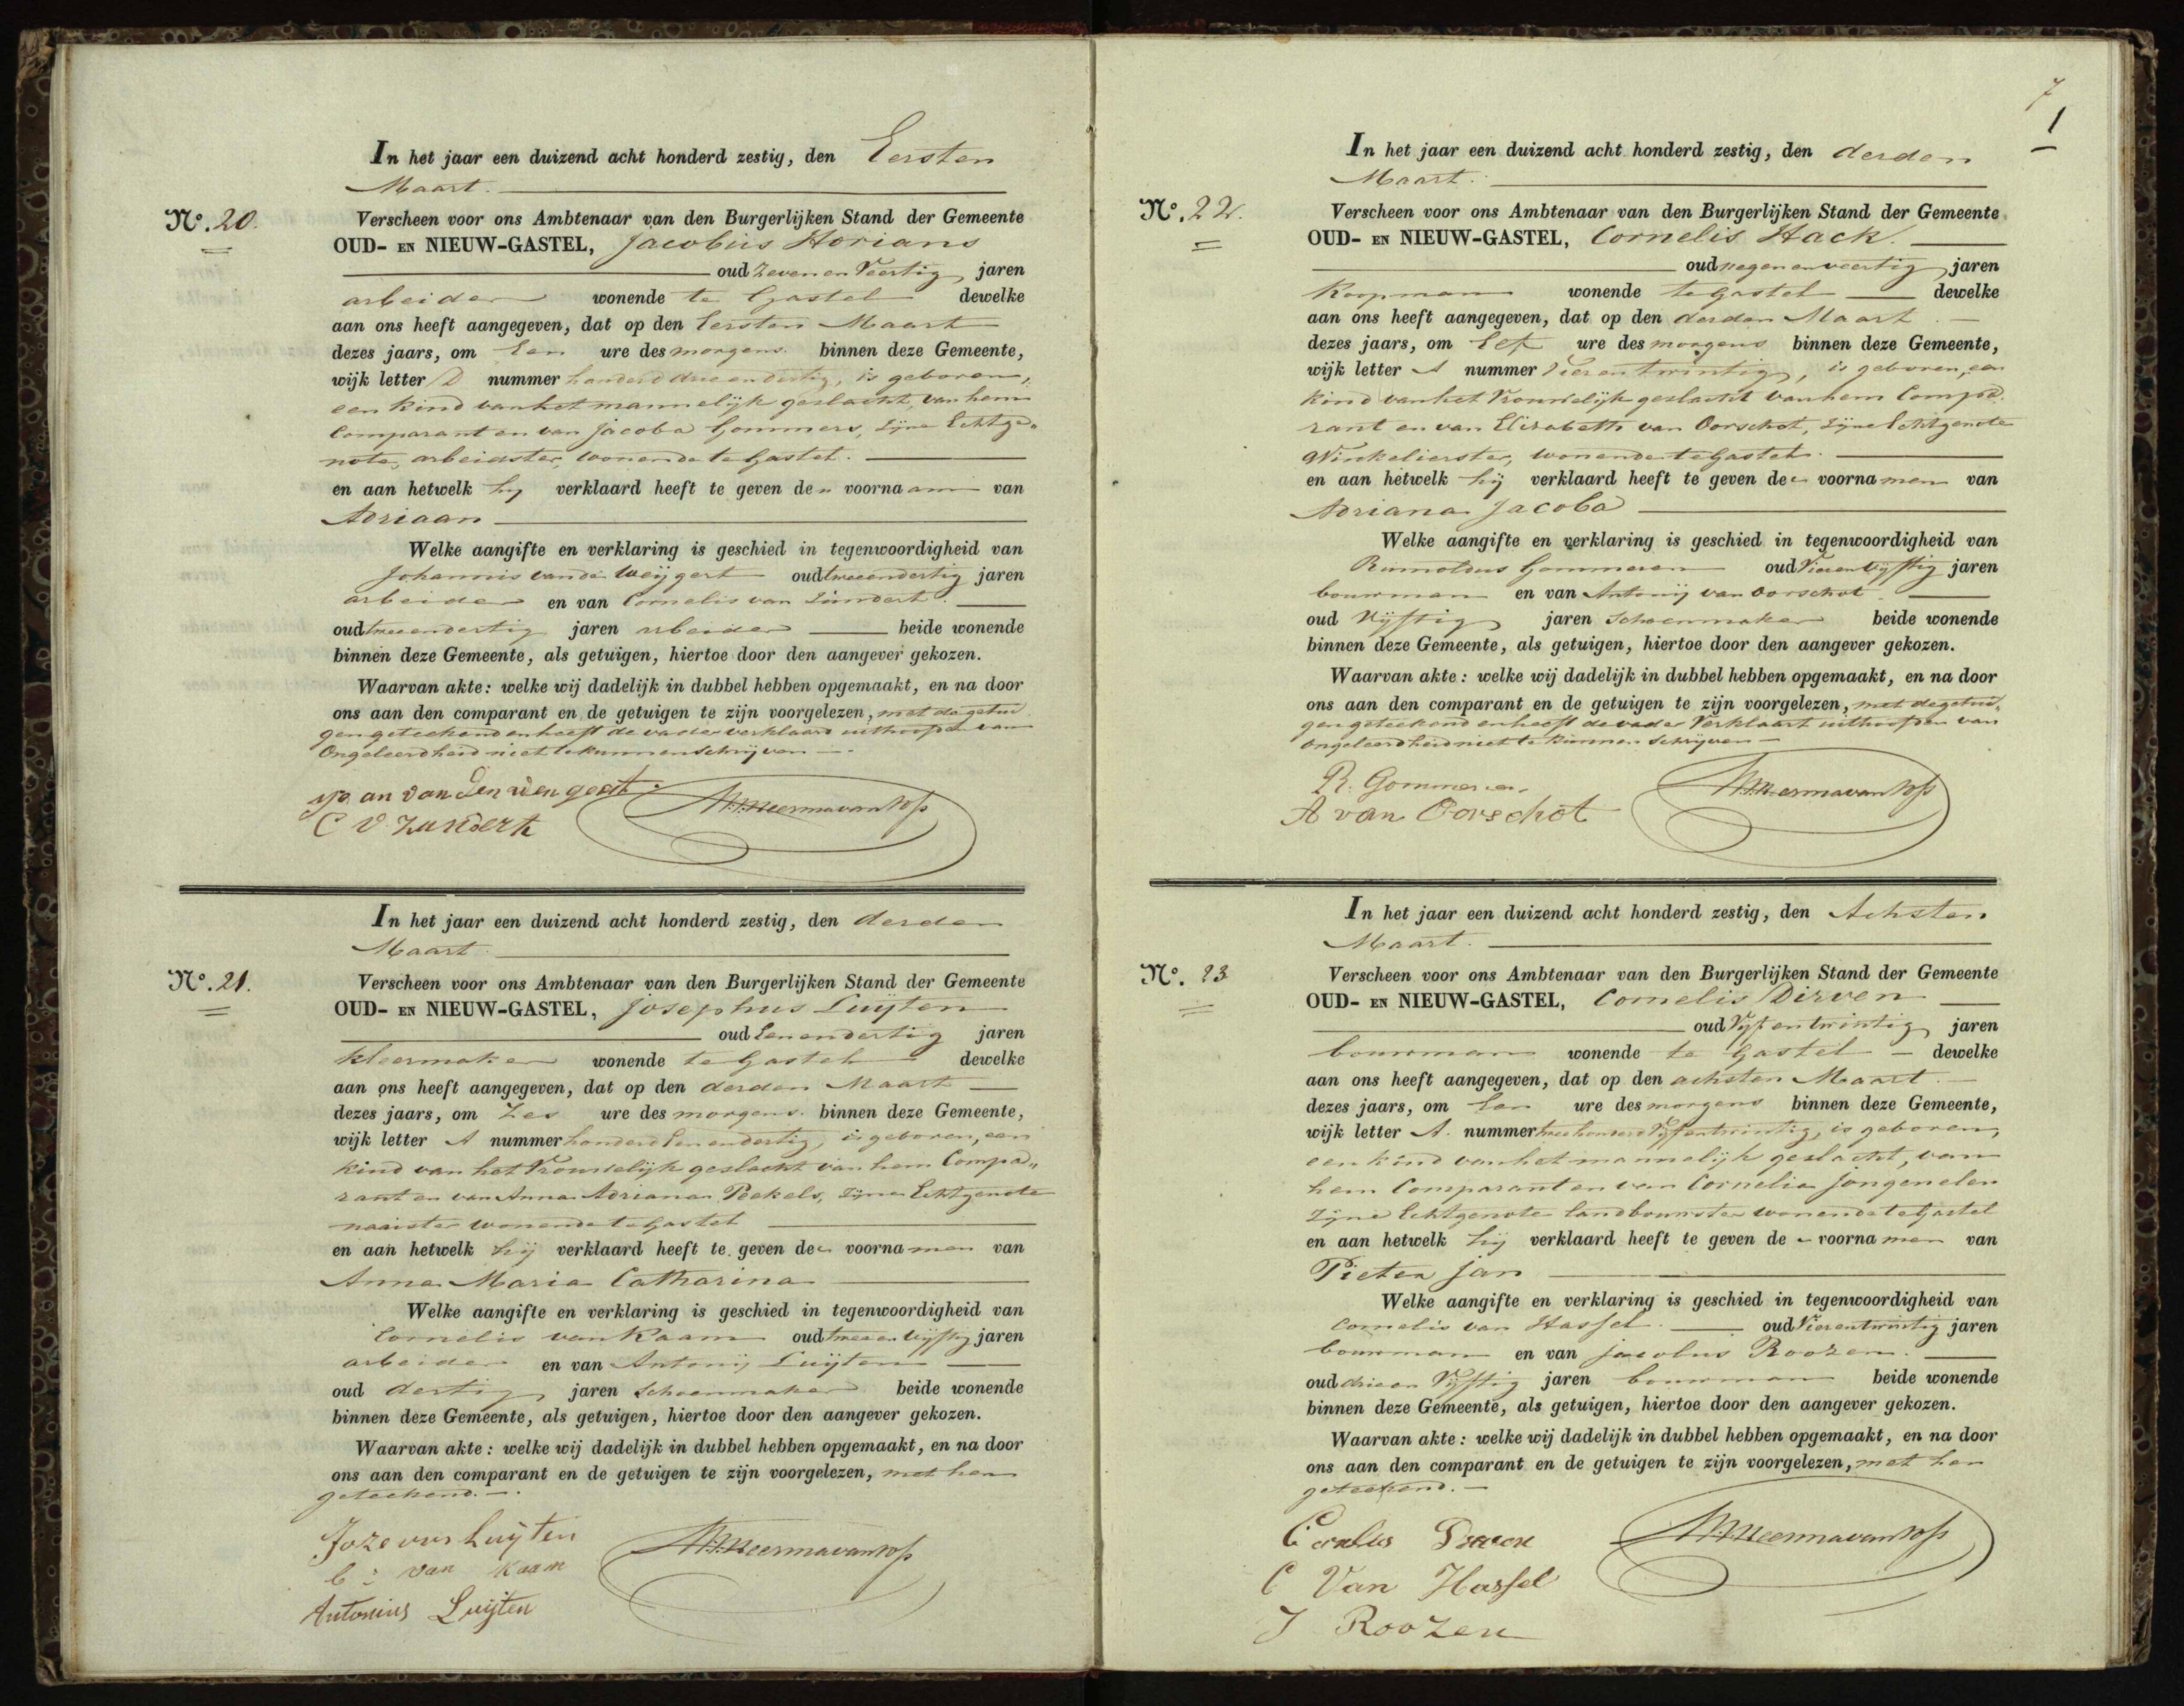 In het jaar een duizend acht honderd zestig, den Eersten
Maart.
No. 20.
Verscheen voor ons Ambtenaar van den Burgerlijken Stand der Gemeente
OUD- EN NIEUW-GASTEL, Jacobus Adrians
oud Zeven en Veertig jaren
arbeider wonende te Gastel dewelke
aan ons heeft aangegeven, dat op den Eersten Maart
dezes jaars, om Een ure des morgens binnen deze Gemeente,
wijk letter D nummer honderd drie en dertig, is geboren,
een kind van het mannelijk geslacht, van hem
Comparant en van Jacoba Gommers, zijne Echtge„
note, arbeidster, wonende te Gastel.
en aan hetwelk hij verklaard heeft te geven den voornaam van
Adriaan
Welke aangifte en verklaring is geschied in tegenwoordigheid van
Johannis van de Weijgert oud twee en dertig jaren
arbeider en van Cornelis van Zundert.
oud twee en dertig jaren arbeider beide wonende
binnen deze Gemeente, als getuigen, hiertoe door den aangever gekozen.
Waarvan akte: welke wij dadelijk in dubbel hebben opgemaakt, en na door
ons aan den comparant en de getuigen te zijn voorgelezen, met de getui
gen geteekend en heeft de vader verklaard uit hoofde van
Ongeleerdheid niet te kunnen schrijven.
C V Zundert
In het jaar een duizend acht honderd zestig, den derden
Maart
No. 21.
Verscheen voor ons Ambtenaar van den Burgerlijken Stand der Gemeente
OUD- EN NIEUW-GASTEL, Josephus Luijten
oud Een en dertig jaren
kleermaker wonende te Gastel dewelke
aan ons heeft aangegeven, dat op den derden Maart
dezes jaars, om Zes ure des morgens. binnen deze Gemeente,
wijk letter A nummer honderd Een en dertig, is geboren, een
kind van het Vrouwelijk geslacht van hem Compa„
rant en van Anna Adriana Peekels, zijne Echtgenote
naaister wonende te Gastel
en aan hetwelk hij verklaard heeft te geven de voornamen van
Anna Maria Catharina
Welke aangifte en verklaring is geschied in tegenwoordigheid van
Cornelis van Kaam oud twee en vijftig jaren
arbeider en van Antonij Luijten
oud dertig jaren Schoenmaker beide wonende
binnen deze Gemeente, als getuigen, hiertoe door den aangever gekozen.
Waarvan akte: welke wij dadelijk in dubbel hebben opgemaakt, en na door
ons aan den comparant en de getuigen te zijn voorgelezen, met hen
geteekend.
Jozevus Luijten
C: van Kaam
Antonius Luijten
7
1
In het jaar een duizend acht honderd zestig, den derden
Maart.
No. 22.
Verscheen voor ons Ambtenaar van den Burgerlijken Stand der Gemeente
OUD- EN NIEUW-GASTEL, Cornelis Hack.
oud negen en veertig jaren
Koopman wonende te Gastel dewelke
aan ons heeft aangegeven, dat op den derden Maart.
dezes jaars, om Elf ure des morgens binnen deze Gemeente,
wijk letter A nummer Vier en twintig, is geboren, een
kind van het Vrouwelijk geslacht van hem Compa„
rant en van Elizabeth van Oorschot, zijne Echtgenote
Winkelierster, wonende te Gastel.
en aan hetwelk hij verklaard heeft te geven de voornamen van
Adriana Jacoba
Welke aangifte en verklaring is geschied in tegenwoordigheid van
Rumoldus Gommeren oud Vier en vijftig jaren
bouwman en van Antonij van Oorschot
oud Vijftig jaren Schoenmaker beide wonende
binnen deze Gemeente, als getuigen, hiertoe door den aangever gekozen.
Waarvan akte: welke wij dadelijk in dubbel hebben opgemaakt, en na door
ons aan den comparant en de getuigen te zijn voorgelezen, met de getui„
gen geteekend en heeft de vader Verklaart uit hoofde van
ongeleerdheid niet te kunnen Schrijven
R. Gommeren
A van Oorschot
In het jaar een duizend acht honderd zestig, den Achsten
Maart.
No. 23
Verscheen voor ons Ambtenaar van den Burgerlijken Stand der Gemeente
OUD- EN NIEUW-GASTEL, Cornelis Dirven
oud Vijf en twintig jaren
bouwman wonende te Gastel dewelke
aan ons heeft aangegeven, dat op den achsten Maart.
dezes jaars, om Een ure des morgens binnen deze Gemeente,
wijk letter A. nummer twee honderd Vijf en twintig, is geboren,
een kind van het mannelijk geslacht, van
hem Comparant en van Cornelia Jongenelen
zijne Echtgenote landbouwster wonende te Gastel
en aan hetwelk hij verklaard heeft te geven de voornamen van
Pieter Jan
Welke aangifte en verklaring is geschied in tegenwoordigheid van
Cornelis van Hassel. oud Vier en twintig jaren
bouwman en van Jacobus Roozen.
oud drie en Vijftig jaren bouwman beide wonende
binnen deze Gemeente, als getuigen, hiertoe door den aangever gekozen.
Waarvan akte: welke wij dadelijk in dubbel hebben opgemaakt, en na door
ons aan den comparant en de getuigen te zijn voorgelezen, met hen
geteekend.
C Van Hassel
J Roozen